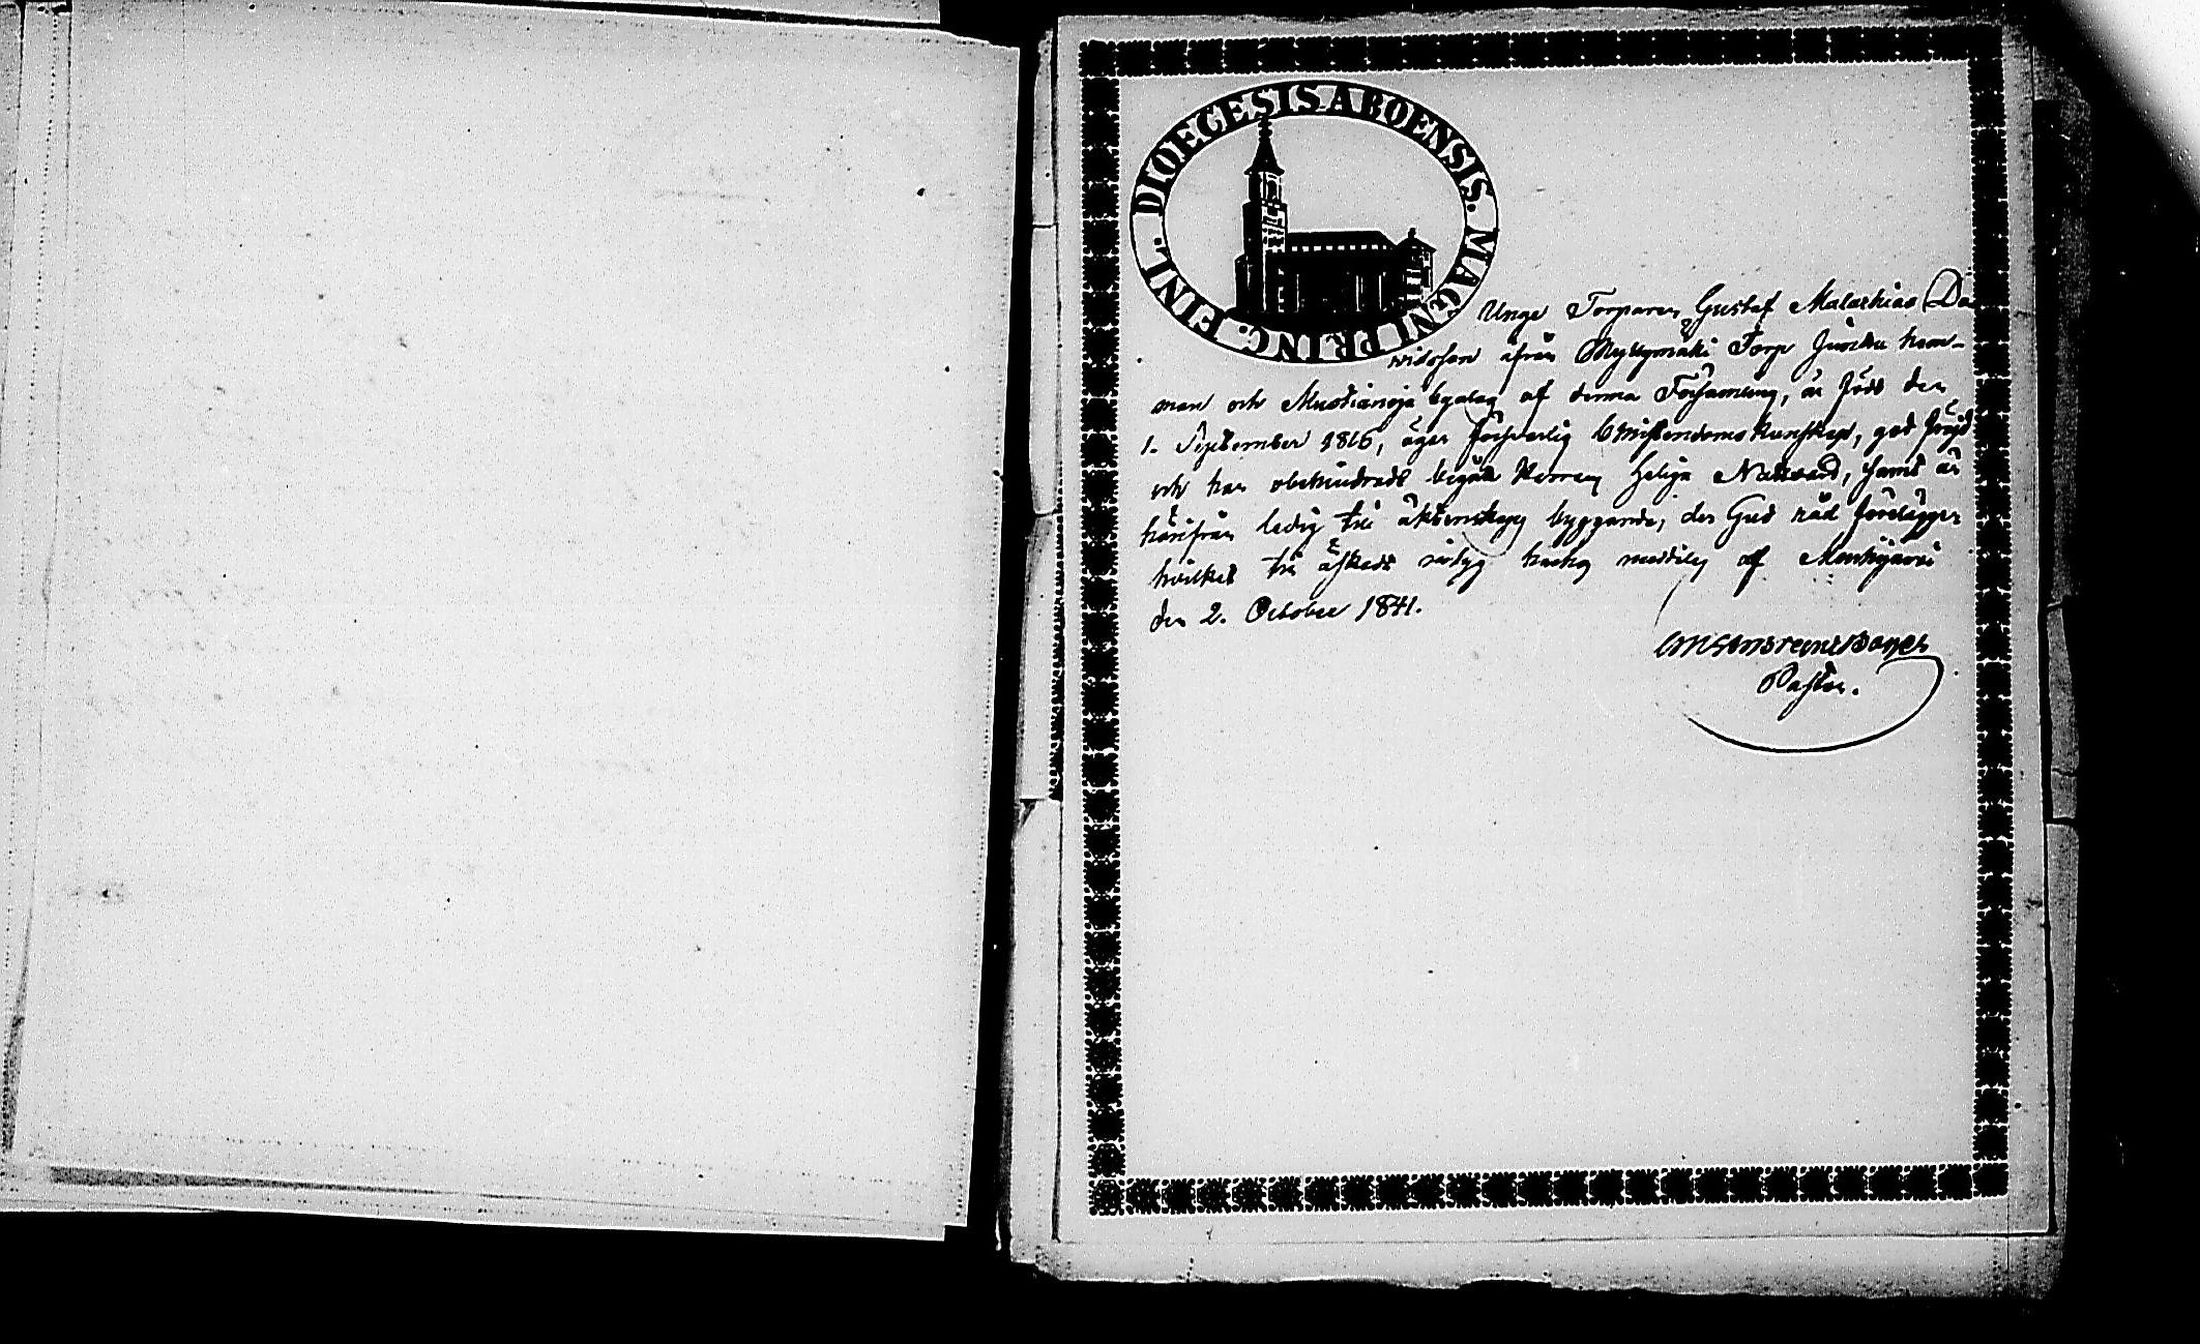 DIOECESIS ABOENSIS. MAGNI PRINC. FINL.
Unge Torparen Gustaf Malachias Da
widsson ifrån Myllymäki Torp Junku hem-
man och Mustianoja byalag af denna Församling, är född den
1. September 1816, äger försvarlig Christendoms kunskap, god frejd
och har obehindradt begått Herrans Heliga Nattvard, samt är
härifrån ledig till äktenskaps byggande, der Gud råd förelägger
hvilket till äskadt intyg meddelas af Mouhijärvi
den 2. October 1841.
Pastor.